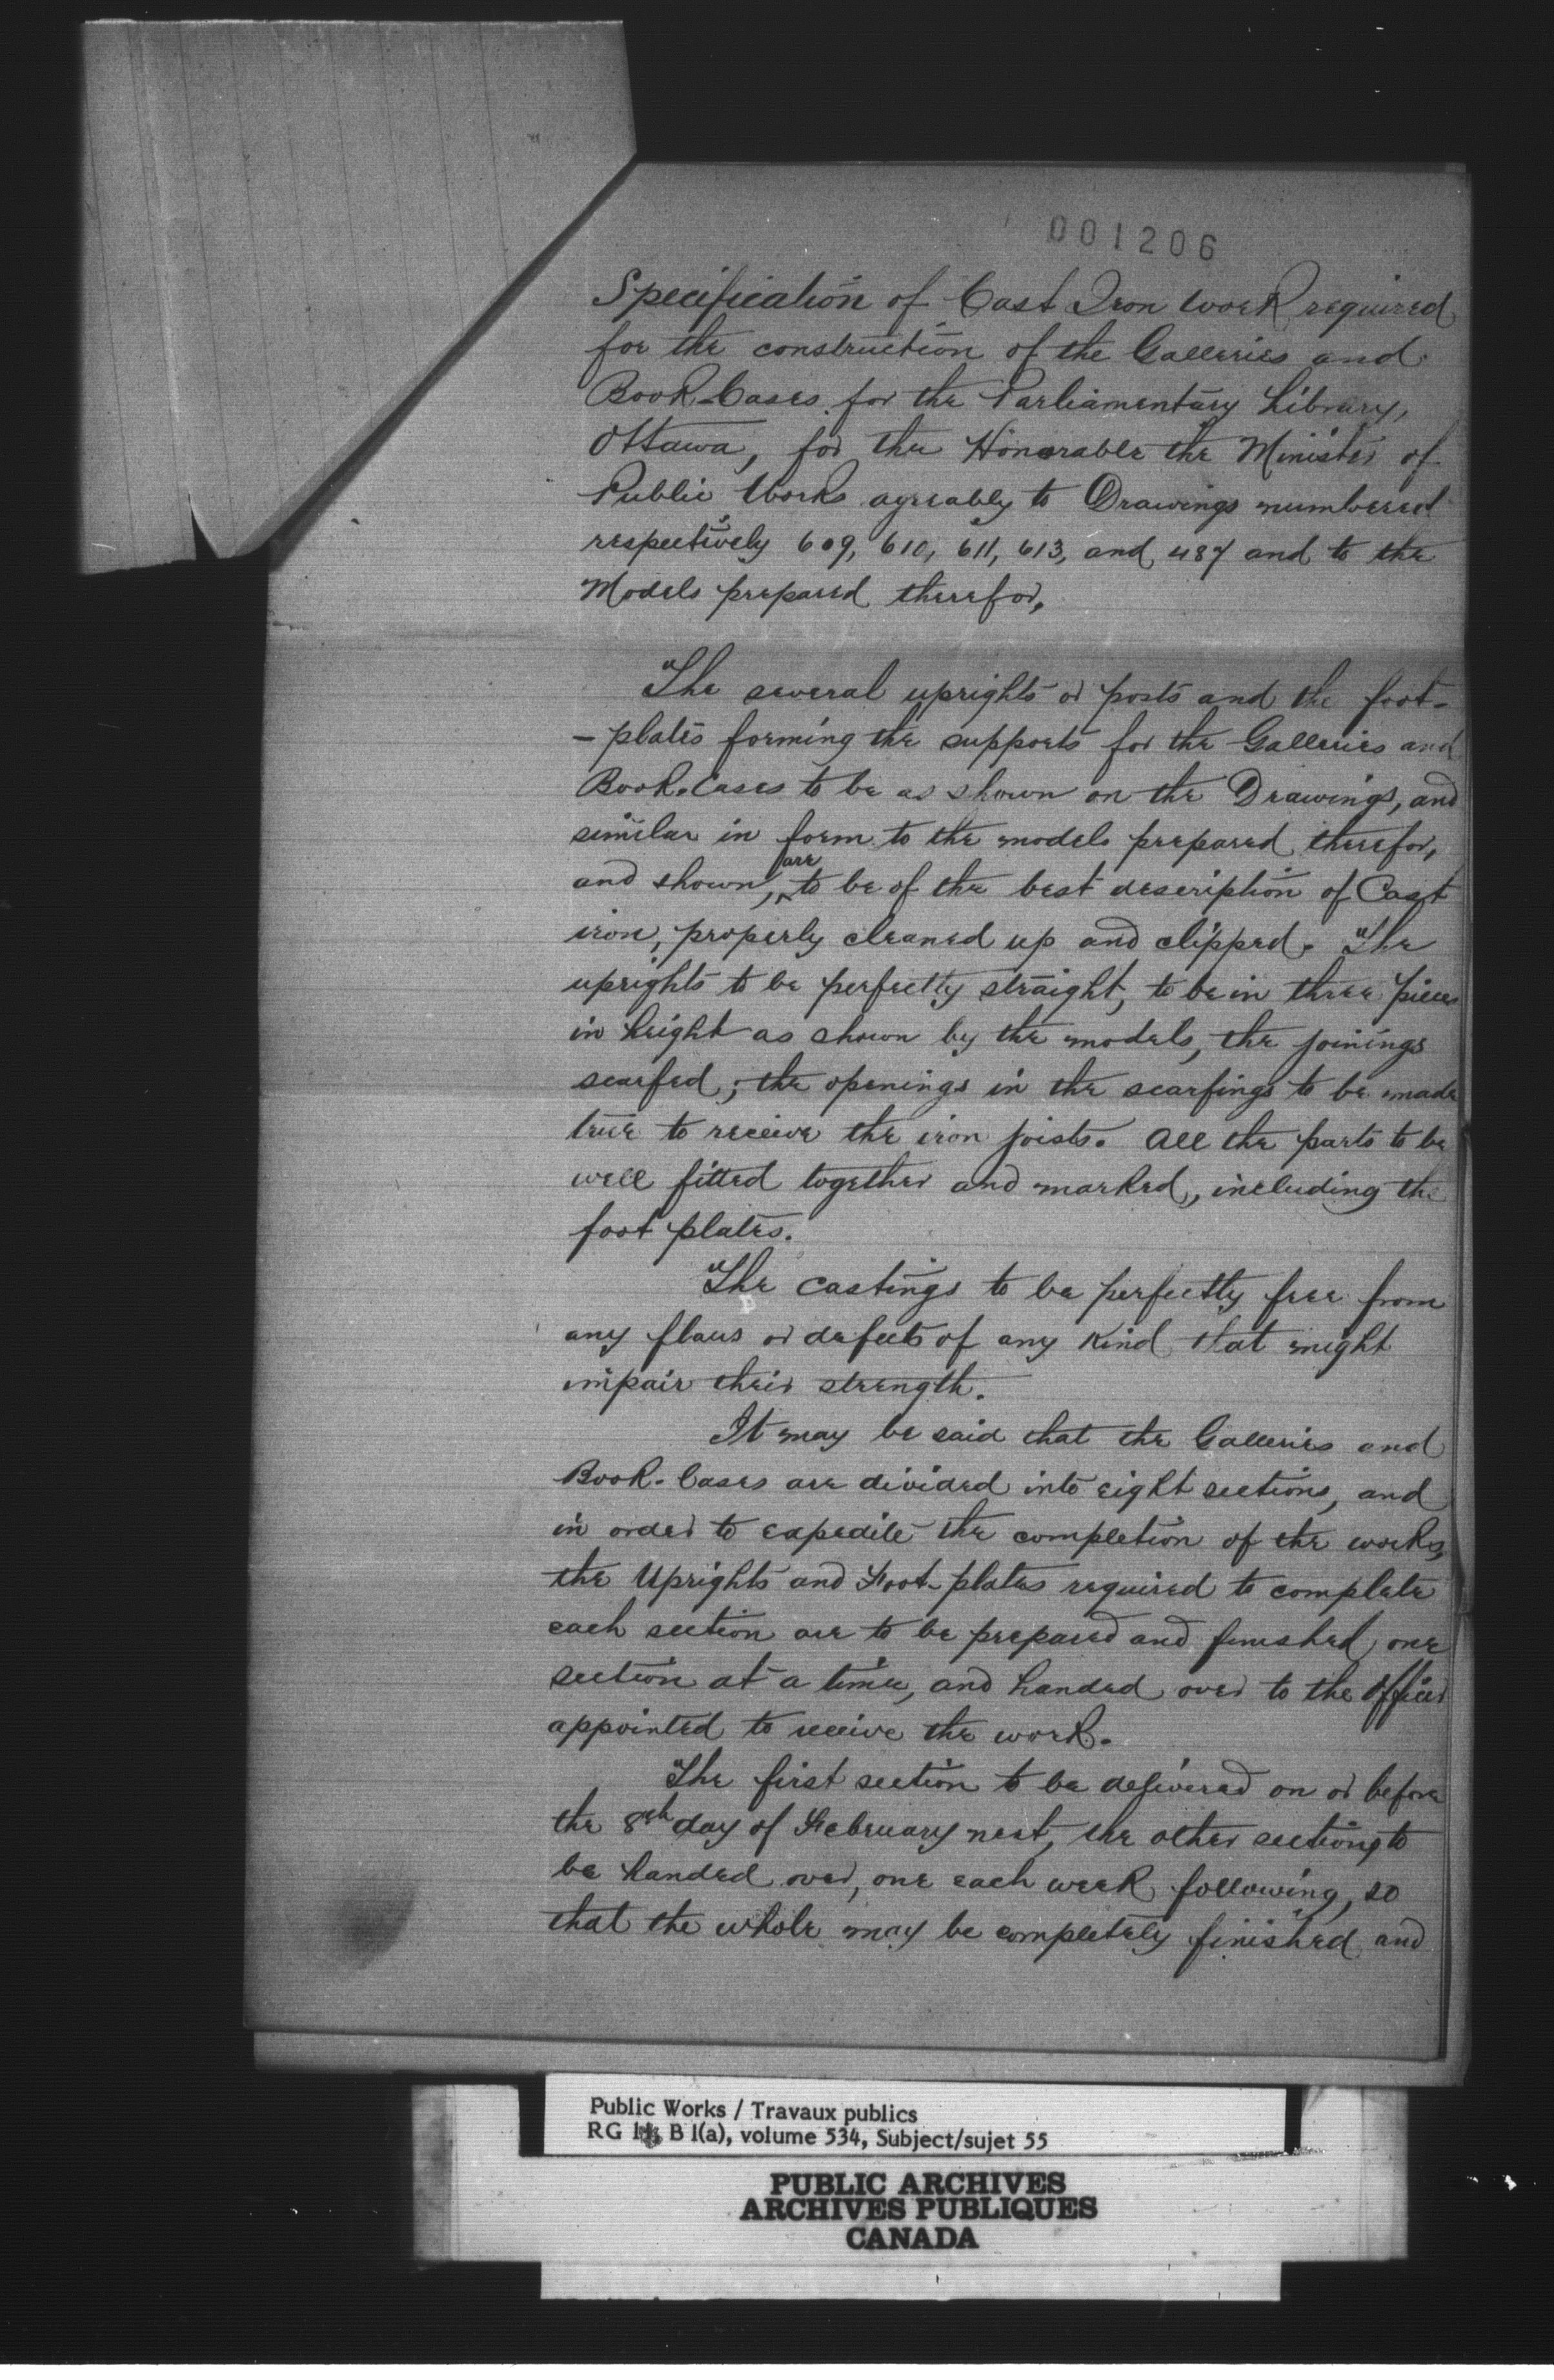 001206
Specification of Cast Iron work required
for the construction of the Galleries and
Book-Cases for the Parliamentary Library,
Ottawa, for the Honorable the Minister of
Public Works agreeably to Drawings numbered
respectively 609, 610, 611, 613, and 487 and to the
Models prepared therefor,
The several uprights or posts and the foot-
-plates forming the supports for the Galleries and
Book-Cases to be as shown on the Drawings, and
similar in form to the models prepared therefor,
and shown, are to be of the best description of Cast
iron, properly cleaned up and clipped. The
uprights to be perfectly straight, to be in three pieces
in height as shown by the models, the joinings
scarfed; the openings in the scarfings to be made
true to receive the iron joists. All the parts to be
well fitted together and marked, including the
foot plates.
The castings to be perfectly free from
any flaws or defects of any kind that might
impair their strength.
It may be said that the Galleries and
Book-Cases are divided into eight sections, and
in order to expedite the completion of the works,
the Uprights and Foot-plates required to complete
each section are to be prepared and finished one
section at a time, and handed over to the Officer
appointed to receive the work.
The first section to be delivered on or before
the 8th day of February next, the other sections to
be handed over, one each week following, so
that the whole may be completely finished and
Public Works / Travaux publics
RG 11, B 1(a), volume 534, Subject/sujet 55
PUBLIC ARCHIVES
ARCHIVES PUBLIQUES
CANADA